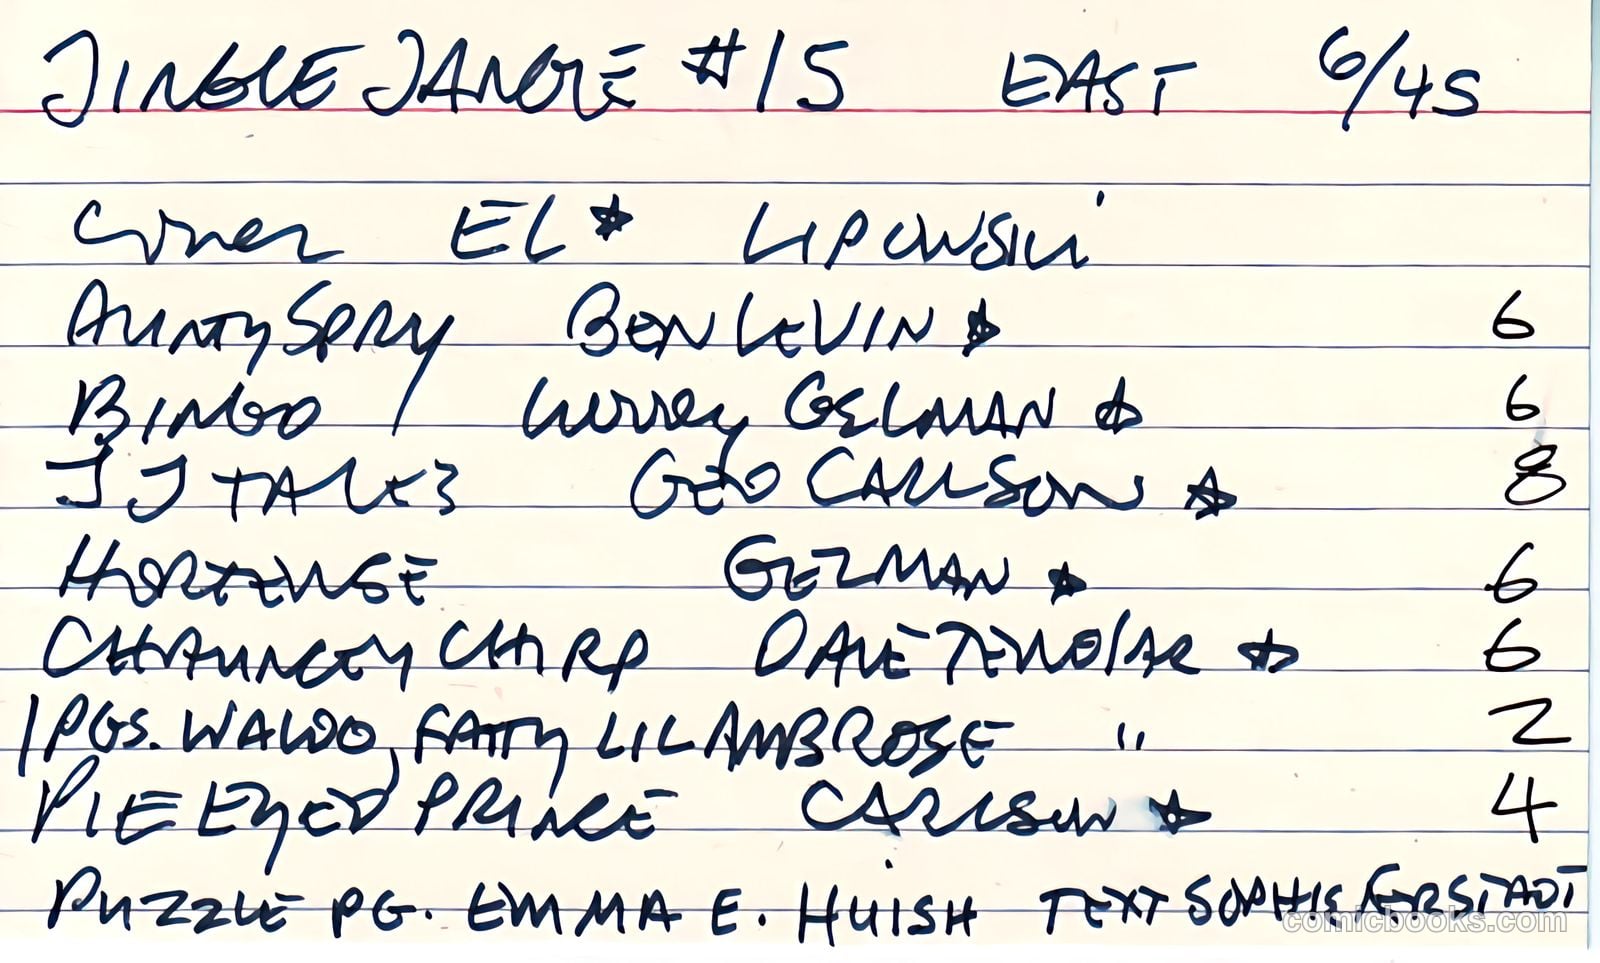 JINGLE JANGLE #15 EAST 6/45
Cover EL★ LIPOWSKI
AUNTY SPRY BEN LEVIN ★ 6
BINGO Woody GELMAN ★ 6
JJ TALES GEO CARLSON ★ 8
HORTENSE GELMAN ★ 6
CHAUNCEY CHIRP DAVE TENDLAR ★ 6
1 PGS. WALDO, FATTY LIL AMBROSE " 2
PIE EYED PRINCE CARLSON ★ 4
PUZZLE PG. EMMA E. HUISH TEXT SOPHIE FERSTADT
comicbooks.com